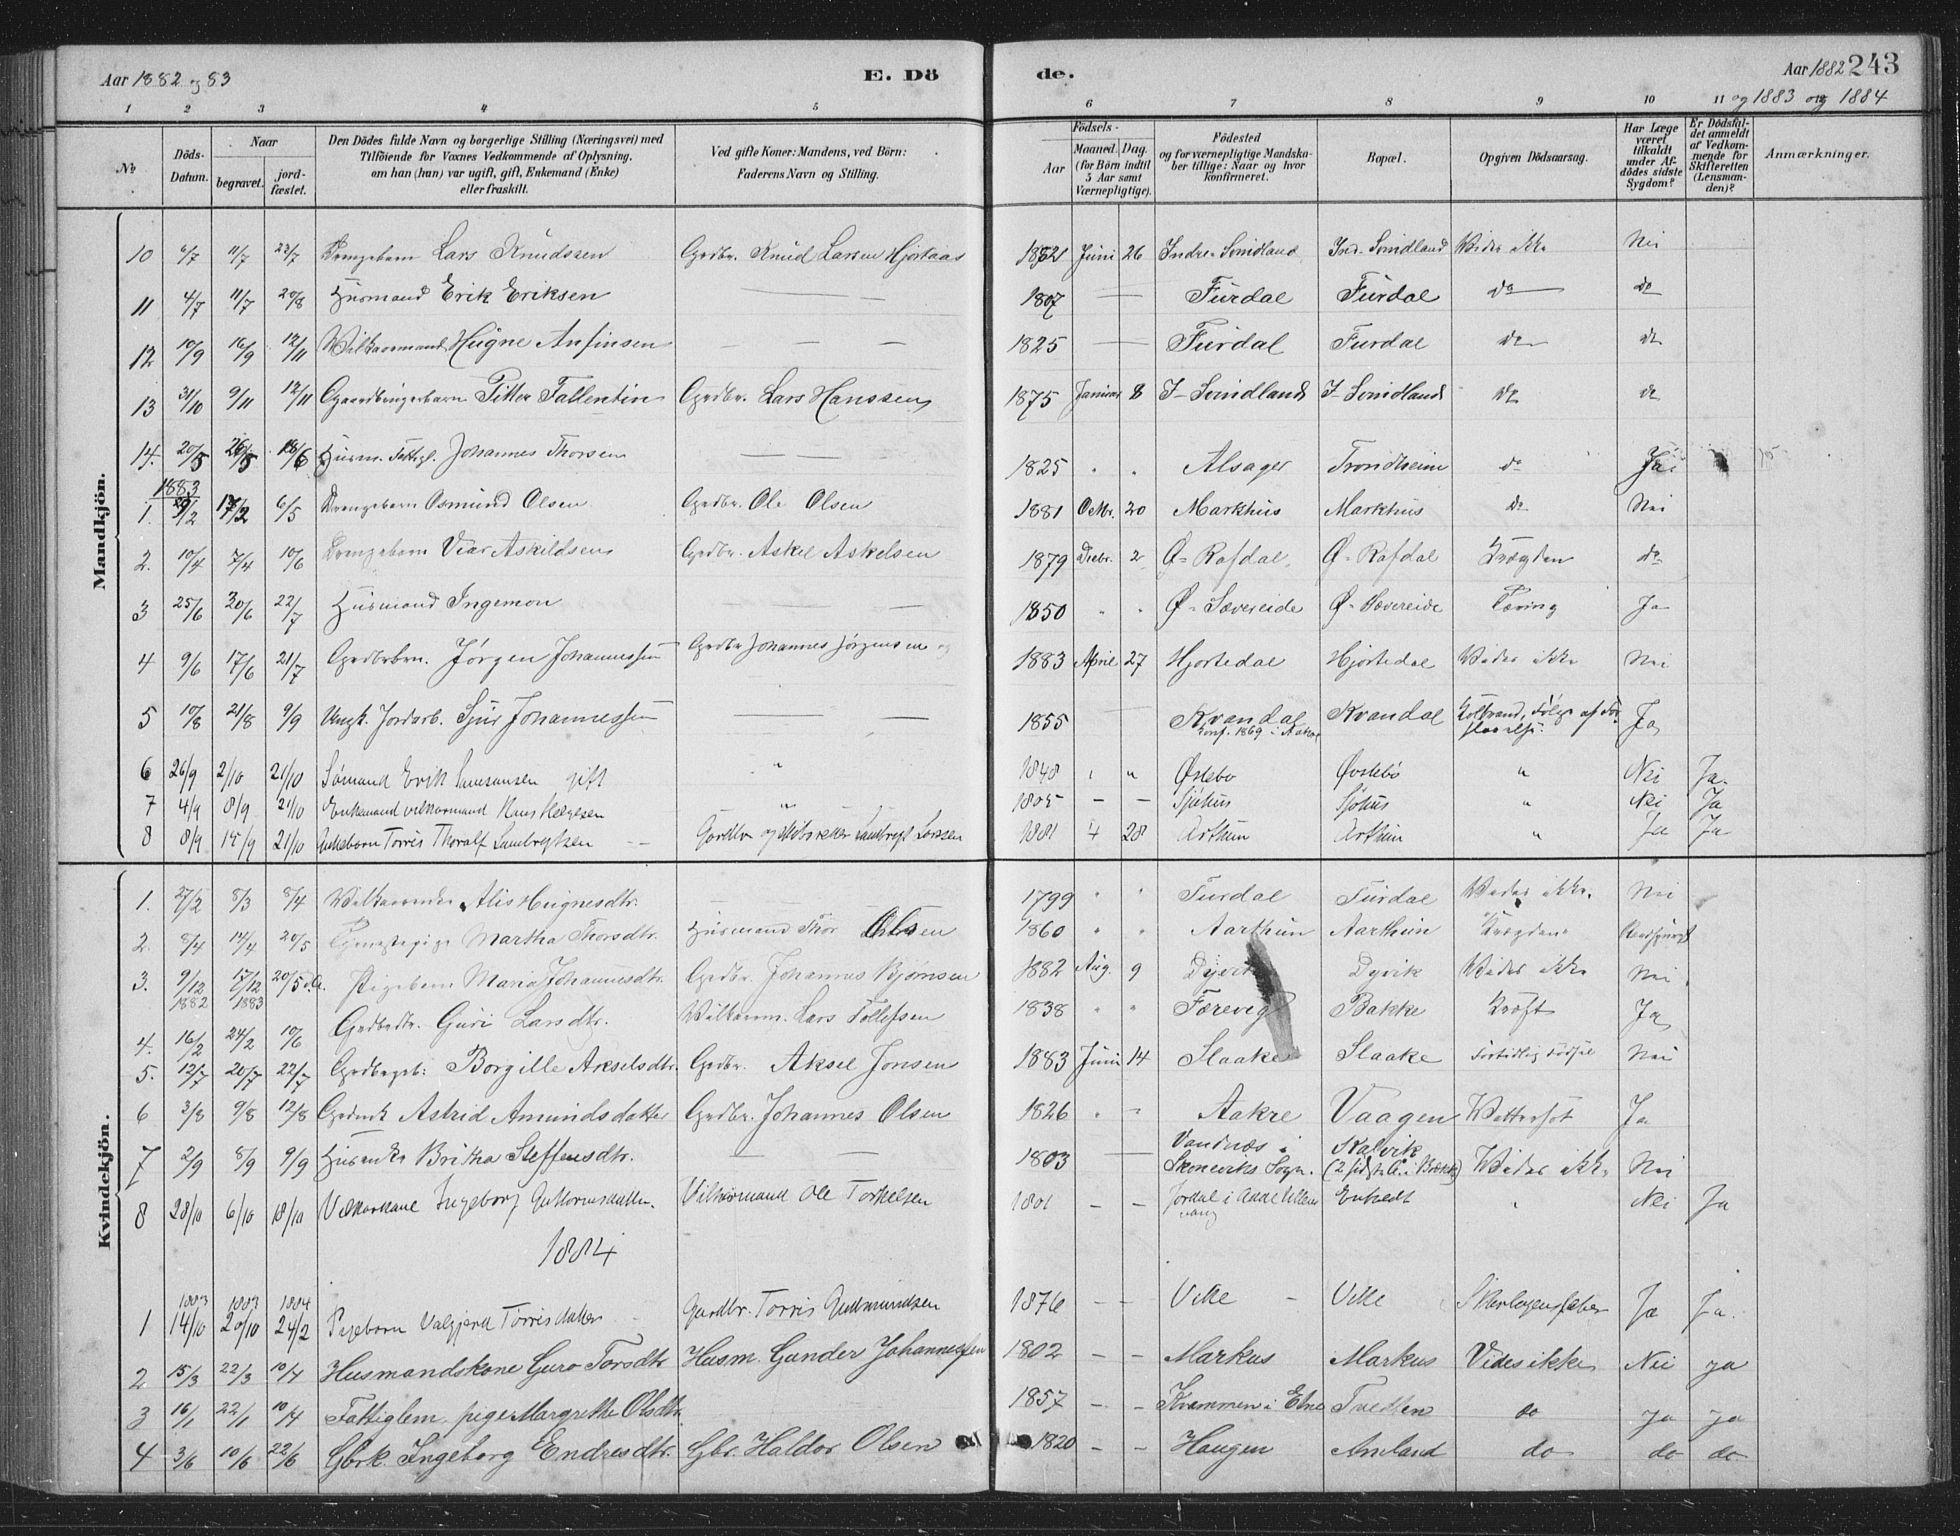 Aar 1882 og 83
E. Dö
de.
Aar 1882 243
og 1883 og 1884
1 2 3 4 5 6 7 8 9 10 11 12
No
Döds-Datum.
Naar
begravet.
jord-fæstet.
Den Dödes fulde Navn og borgerlige Stilling (Næringsvei) med
Tilföiende for Voxnes Vedkommende af Oplysning,
om han (hun) var ugift, gift, Enkemand (Enke)
eller fraskilt.
Ved gifte Koner: Mandens, ved Börn:
Faderens Navn og Stilling.
Födsels-
Aar
Maaned. Dag.
(for Börn indtil
5 Aar samt
Værnepligtige).
Födested
og for værnepligtige Mandska-
ber tillige: Naar og hvor
konfirmeret.
Bopæl.
Opgiven Dödsaarsag.
Har Læge
været
tilkaldt
under Af-
dödes sidste
Sygdom?
Er Dödsfal-
det anmeldt
af Vedkom-
mende for
Skifteretten
(Lensman-
den)?
Anmærkninger.
Mandkjön.
10 6/7 11/7 23/7 Drengebarn Lars Knudssen Grdbr. Knud Larsen Hjortaas 1882 Juni 26 Indre Svindland Ind. Svindland Vides ikke Nei
11 4/7 11/7 20/8 Husmand Erik Eriksen 1807 Furdal Furdal do do
12 10/9 16/9 12/11 Vilkaarmand Hugne Anfinsen 1825 Furdal Furdal do do
13 31/10 9/11 12/11 Gaardbrugerbarn Pitter Fallentin Grdbr. Lars Hanssen 1875 Januar 8 I-Svindland I-Svindland do do
14. 20/5 26/5 18/6 Husm. Fattigl. Johannes Thorsen 1825 " " Alsager Trondheim do
1883
1. 17/2 6/5 Drengebarn Osmund Olsen Grdbr. Ole Olsen 1881 Octbr. 20 Markhus Markhus do Nei
2. 10/4 7/4 10/6 Drengebarn Viar Askildsen Grdbr. Askel Askelsen 1879 Decbr. 2 Ø-Rafdal Ø-Rafdal do
3 25/6 30/6 22/7 Husmand Ingemon 1850 " " Ø-Sævereide Ø-Sævereide Tæring Ja
4 9/6 17/6 21/7 Grdbrbrn. Jørgen Johannessen Grdbr Johannes Jørgensen 1883 April 27 Hjortedal Hjortedal Vides ikke Nei
5 10/8 21/8 9/9 Ungk. Jordarb. Sjur Johannessen 1855 Kvandal Kvandal Ja
konf. 1869 i Aakre
6 26/9 2/10 21/10 Sømand Erik Samsonsen gift " 1848 " " Østebø Østebø " Nei Ja.
7 4/9 8/9 21/10 Enkemand vilkarmand Hans Helgesen " 1805 – – Sjøhus Sjøhus " Nei Ja
8 8/9 15/9 21/10 Torris Thoralf Lambregtsen Gardbr og Lambregt Larssen 1881 4 28 Arthun Arthun " Ja Ja
Kvindekjön.
1. 27/2 8/3 8/4 Alis Hugnesdtr. 1799 " " Furdal Furdal Vides ikke. Nei
2. 8/4 14/4 20/5 Tjenestepige Martha Thorsdtr. Husmand Thor Olsen 1860 " " Aarthun Aarthun
3. 9/12 1882 17/12 1883 20/5 Pigebarn Maria Johannesdtr. Grdbr. Johannes Bjørnsen 1882 Aug. 9 Dyvik Dyvik Vides ikke Nei
4. 16/2 24/2 10/6 Guri Larsdtr. Vilkaarm. Lars Tollefsen 1838 " " Færevig Bakke Kræft Ja
5. 12/7 20/7 22/7 Borgille Akselsdtr. Grdbr. Aksel Jonsen 1883 Juni 14 Slaake Slaake Fortidlig Fødsel Nei
6 3/8 9/8 12/8 Astrid Amundsdatter Grdbr. Johannes Olsen 1826 " – Aakre Vaagen Vattersot Ja
7 2/9 8/9 9/9 Britha Steffensdtr. 1803 Vandnæs i Skoneviks Sogn. Kalvik Vides ikke Nei
8 28/10 6/10 18/10 Vilkarkone Ingeborg Guttormsdatter. Vilkarmand Ole Torkelsen 1801 – – Jordal i Odde Ullensvang " Nei Ja
1884
1 1883 14/10 1883 20/10 1884 24/2 Pigebarn Valgjerd Torrisdatter Gardbr. Torris Gudmundsen 1876 – – Vike – Vike Skarlagensfeber Ja Ja.
2 15/3 22/3 10/4 Husmandskone Guro Torsdtr Husm. Gunder Johannessen 1802 – – Markus Markus Vides ikke Nei ja
3 16/1 22/1 10/4 Fattiglem. pige Margrethe Olsdtr 1857 – – Kvammen i Etne Tvedten do ja ja
4 3/6 10/6 22/6 Gbrk. Ingeborg Endresdtr. Gbr. Haldor Olsen 1820 – – Haugen Amland do do do